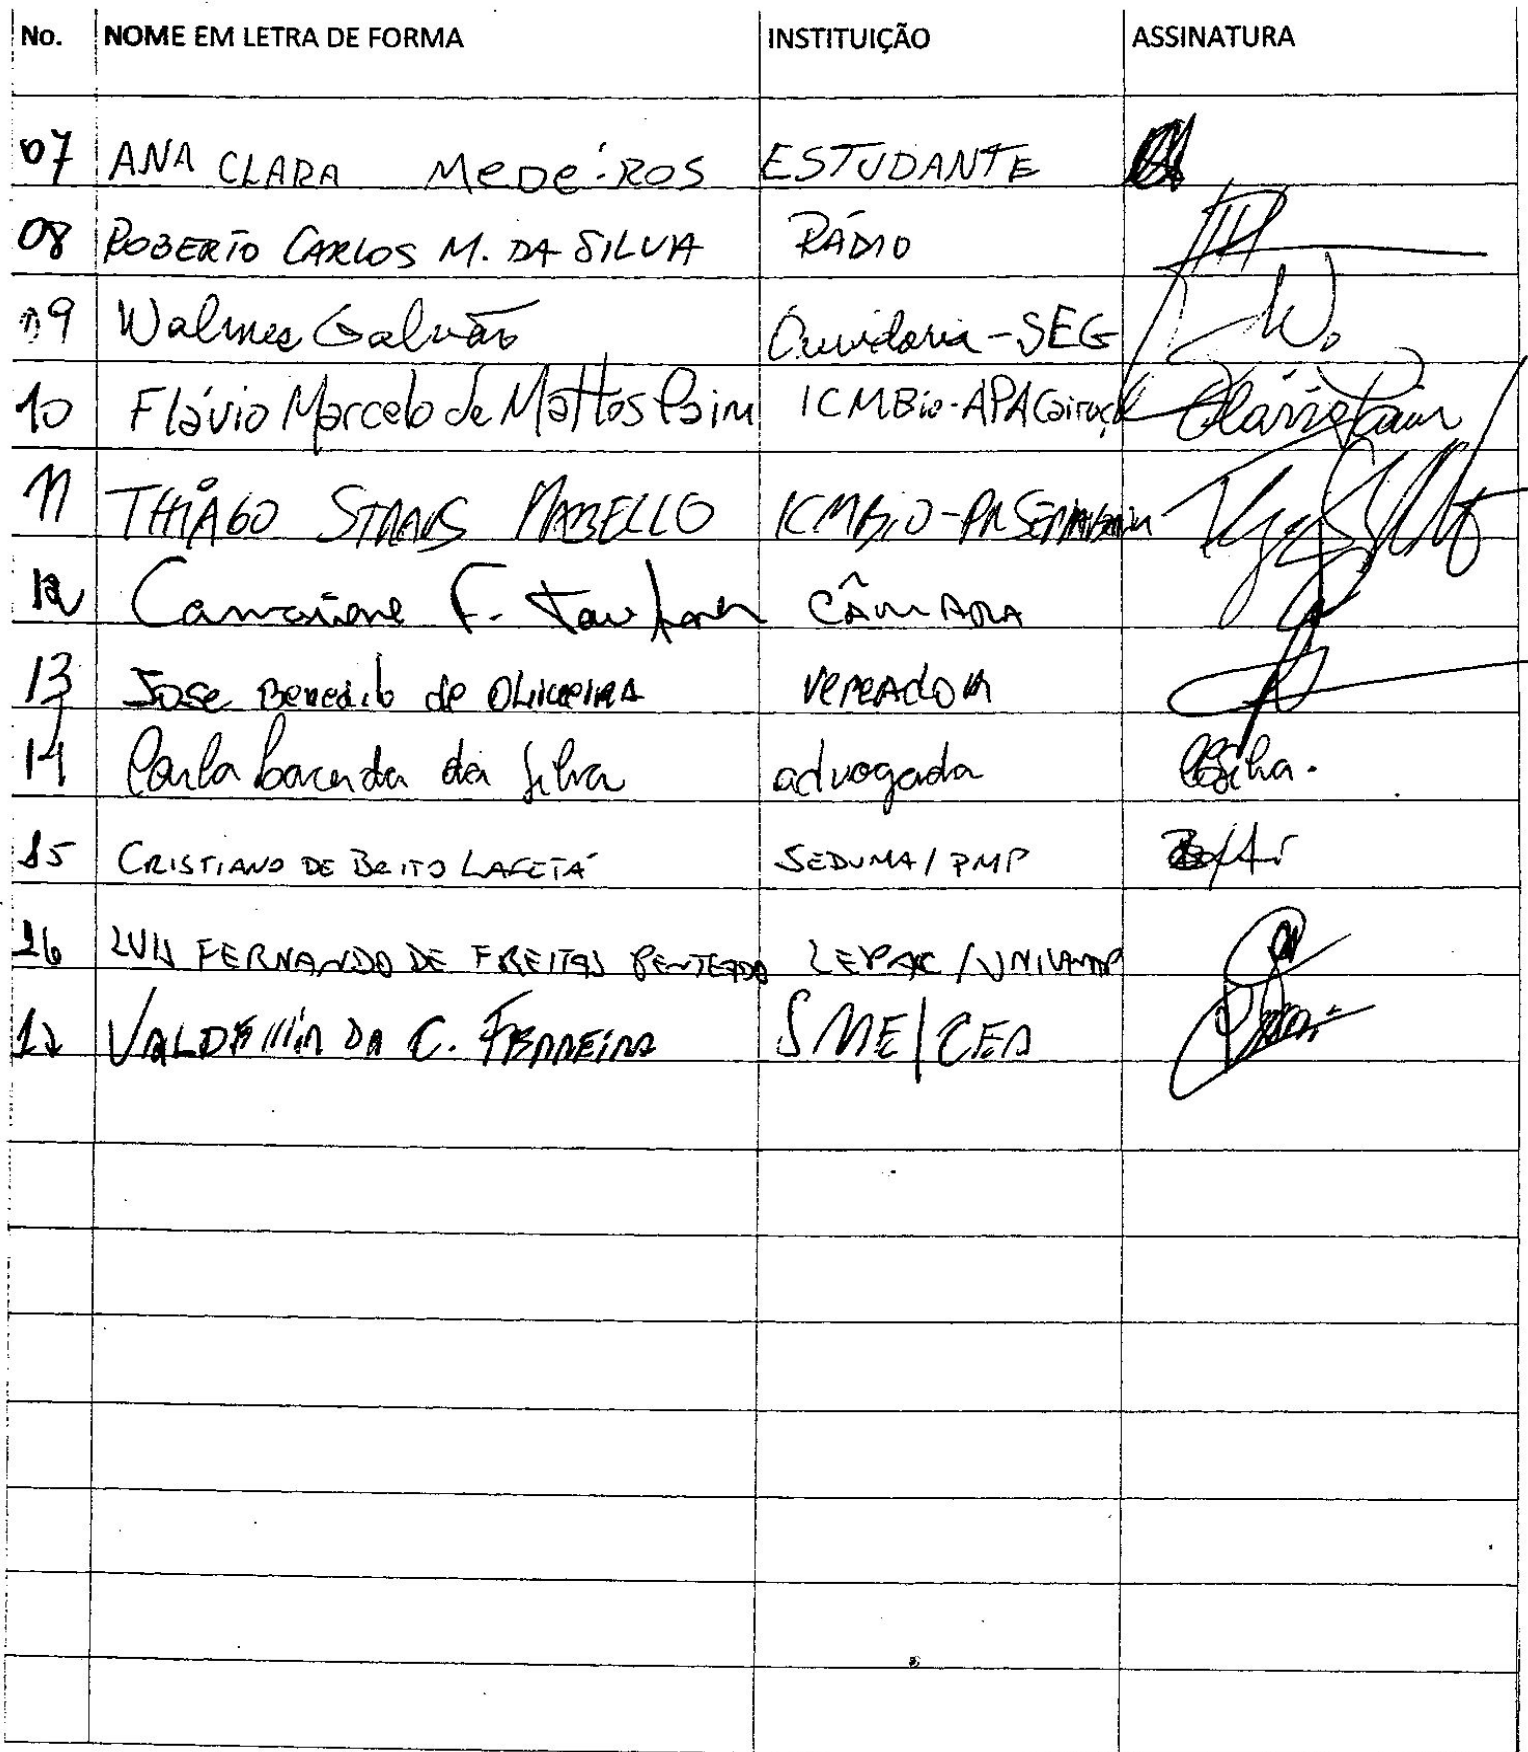 No. NOME EM LETRA DE FORMA INSTITUIÇÃO ASSINATURA
07 ANA CLARA MEDEIROS ESTUDANTE
08 ROBERTO CARLOS M. DA SILVA RÁDIO
09 Walmes Galvão Ouvidoria - SEG W.
10 Flávio Marcelo de Mattos Paim ICMBio - APA Cairuçu Flávio Paim
11 THIAGO STRAUS RABELLO ICMBIO -
12 F. CÂMARA
13 Jose Benedito de OLIVEIRA VEREADOR
14 da Silva advogada
15 CRISTIANO DE BRITO LAFETÁ SEDUMA / PMP
16 LUIS FERNANDO DE FREITAS PENTEADO LEPAC / UNICAMP
17 VALDEMIR DA C. FERREIRA SME / CEA